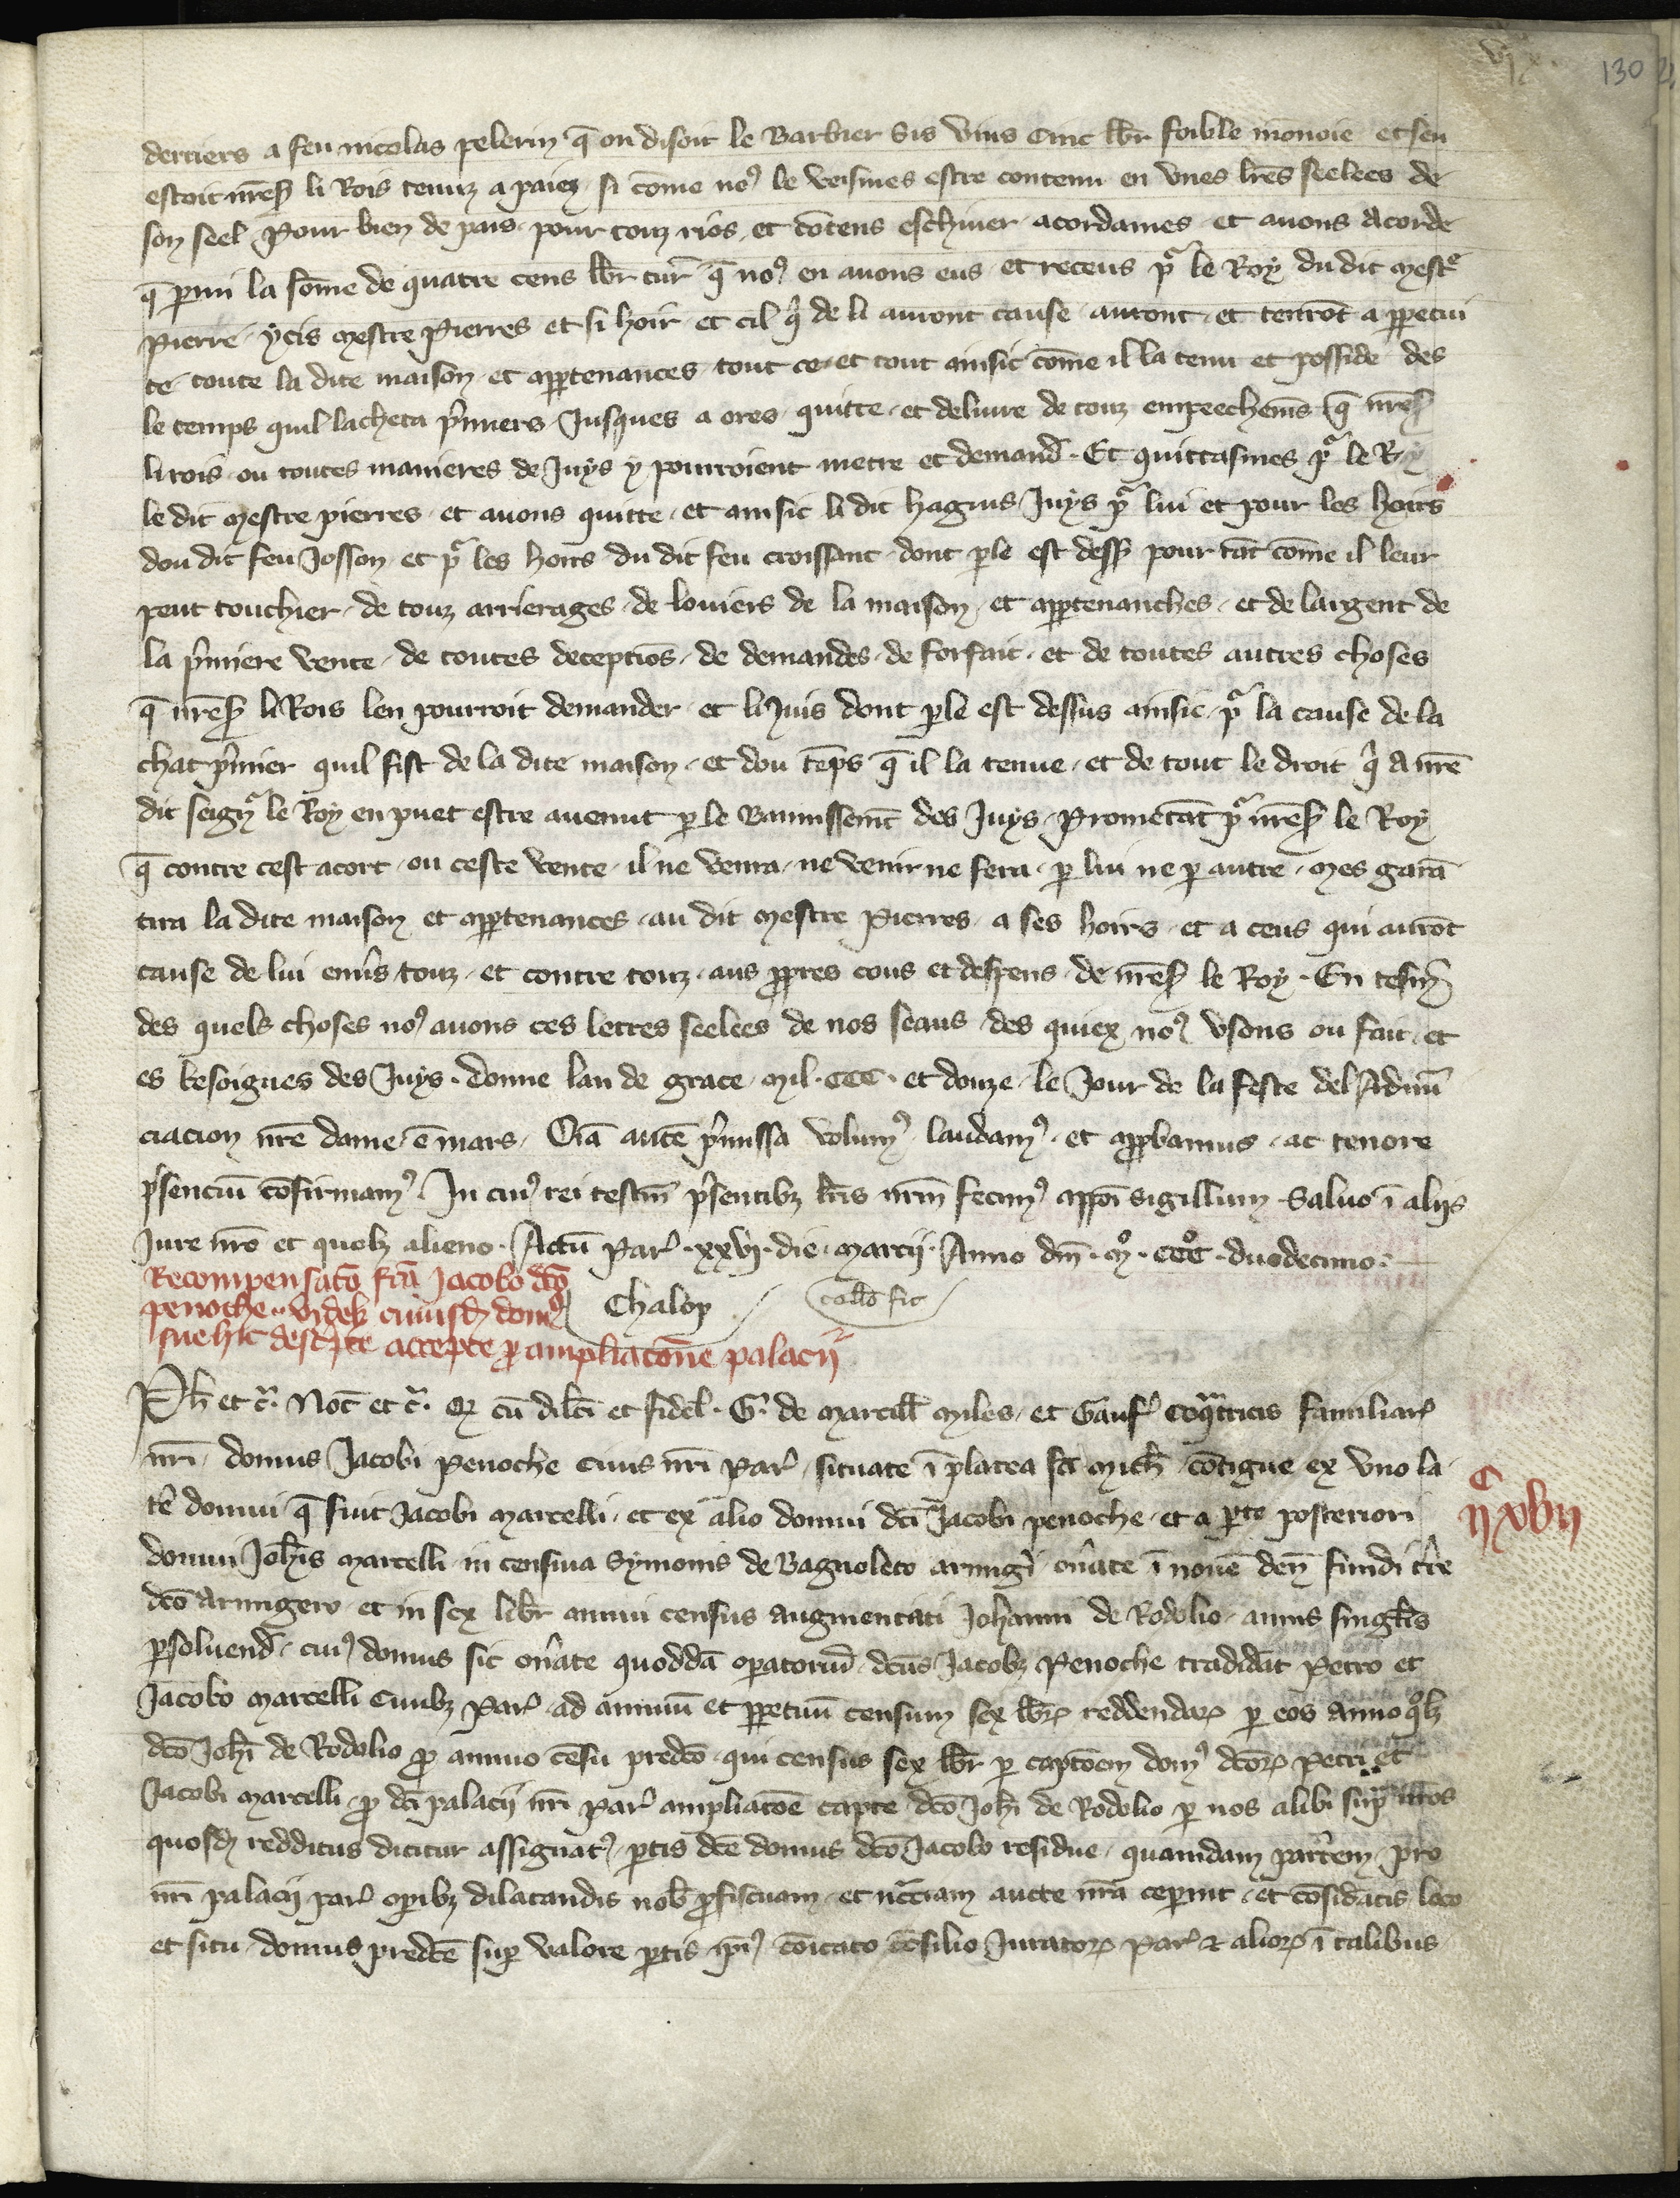 130
derriers a feu nicolas pelerin q̄ on disoit le Barbier Sis vins Cinc lb̄r foible monoie et sen
estoit nr̄es̄ li Rois tenuz a paiez si cōme noꝰ le veismes estre contenu en vnes lr̄es seelees de
son seel Pour bien de pais pour touz rios et cōtens eschiuer acordames et auons Acorde
q̄ ꝑmi la sōme de quatre cens lb̄r tur̄ q̄ noꝰ en auons eus et receus pͬ le Roy du dit mestᵉ
Pierre ycis mestre Pierres et si hoir et cil qͥ de li auront cause auront et tenrōt a ꝑpetui
te toute la dite maison et apꝑtenances tout ce et tout ainsic cōme il la tenu et posside des
le temps quil lacheta pͥmiers Jusques a ores quitte et deliure de touz empeechemēs q̄ nr̄es̄
li rois ou toutes manieres de Juys y pourroient metre et demand̄. Et quittasmes pͬ le Roy
le dit mestre pierres et auons quitte et ainsic li dit hagins Juys pͬ lui et pour les hoirs
dou dit feu Josson et pͬ les hoirs du dit feu croissant dont ꝑle est dess̄ pour tāt cōme il leur
peut touchier de touz arrierages de louiers de la maison et apꝑtenanches et de largent de
la pͥmiere vente de toutes deceptiōs de demandes de forfait et de toutes autres choses
q̄ nr̄es̄ li Rois len pourroit demander et li Juis dont ꝑle est dessus ainsic pͬ la cause de la
chat pͥmier quil fist de la dite maison et dou tēps q̄ il la tenue et de tout le droit qͥ a nr̄e
dit seigͬ le Roy en puet estre auenut ꝑ le Bannissemt̄ des Juys Prometāt pͬ nr̄es̄ le Roy
q̄ contre cest acort ou ceste vente il ne venra ne venir ne fera ꝑ lui ne ꝑ autre Mes garā
tira la dite maison et apꝑtenances au dit mestre Pierres a ses hoirs et a ceus qui aurōt
cause de lui enuͥs touz et contre touz aus ꝓpres cous et despens de nr̄es̄ le Roy. En tesm̄
des quels choses noꝰ auons ces lettres seelees de nos seaus des quiex noꝰ vsons ou fait et
es besoignes des Juys. donne lan de grace mil. CCC. et douze le Jour de la feste del Adnū
ciacion nr̄e dame ē mars. Oīa autē pͥmissa volumꝰ laudamꝰ et apꝓbamus ac tenore
pͥsenciū cōfirmamꝰ. In cuiꝰ rei testim̄ pͥsentibꝫ lr̄is nr̄m fecimꝰ appōi sigillum Saluo ī aliis
Jure nr̄o et quolꝫ alieno. Actū Parͥ. xxvi. die marcii. Anno dn̄i. Mͦ. CCCͦ. duodecimo.
Recompensatō fc̄a Jacobo dc̄o
penoche vidꝫ cuiusd̄ domꝰ Chalop collō fit
sue hic descͥpte accepte ꝓ ampliacōne palacii
Ph̄ et c̄. Not̄ et c̄. Qꝫ cū dilc̄i et fidel̄. G. de Marcill̄ Miles et Gauf̄ Coqᵃtricis familiarꝭ
nr̄i domus Jacobi Penoche Ciuis nr̄i Parͥ situate ī platea sc̄i Mich̄ cōtigue ex vno la
tē domui q̄ fuit Jacobi Marcelli et ex alio domui dc̄i Jacobi penoche et a ꝑte posteriori
domui Joh̄is Marcelli in censiua Symonis de Bagnoleto armigͥi on̄ate ī nouē den̄ fundi tr̄e
dc̄o Armigero et in sex libr̄ annui census augmentati Johanni de Rodolio annis singl̄is
ꝑsoluend̄ cuiꝰ domus sic on̄ate quoddā oꝑatoriū dc̄us Jacobꝫ Penoche tradidāt Petro et
Jacobo Marcelli Ciuibꝫ Parͥ ad annuū et ꝑpetuū censum sex lb̄rꝝ reddendarꝝ ꝑ eos Anno qͦlꝫ
dc̄o Joh̄i de Rodolio ꝓ annuo cēsu predc̄o qui census sex lb̄r ꝑ captōem domꝰ dc̄orꝝ Petri et
Jacobi Marcelli ꝓ dc̄i palacii nr̄i Parͥ ampliacōe capte dc̄o Joh̄i de Rodolio ꝑ nos alibi suꝑ nr̄os
quosd̄ redditus dicitur assignatꝰ ꝑtis dc̄e domus dc̄o Jacobo residue quamdam partem pro
nr̄i palacii Parͥ oꝑibꝫ dilatandis nob̄ ꝓficuam et nc̄c̄iam aucte nr̄a ceperint et cōsid̄atis loco
et situ domus predc̄e suꝑ valore ꝑtis ip̄iꝰ cōicato cōsilio Juratorꝝ Parͥ ⁊ aliorꝝ ī talibus
C
ii xvii